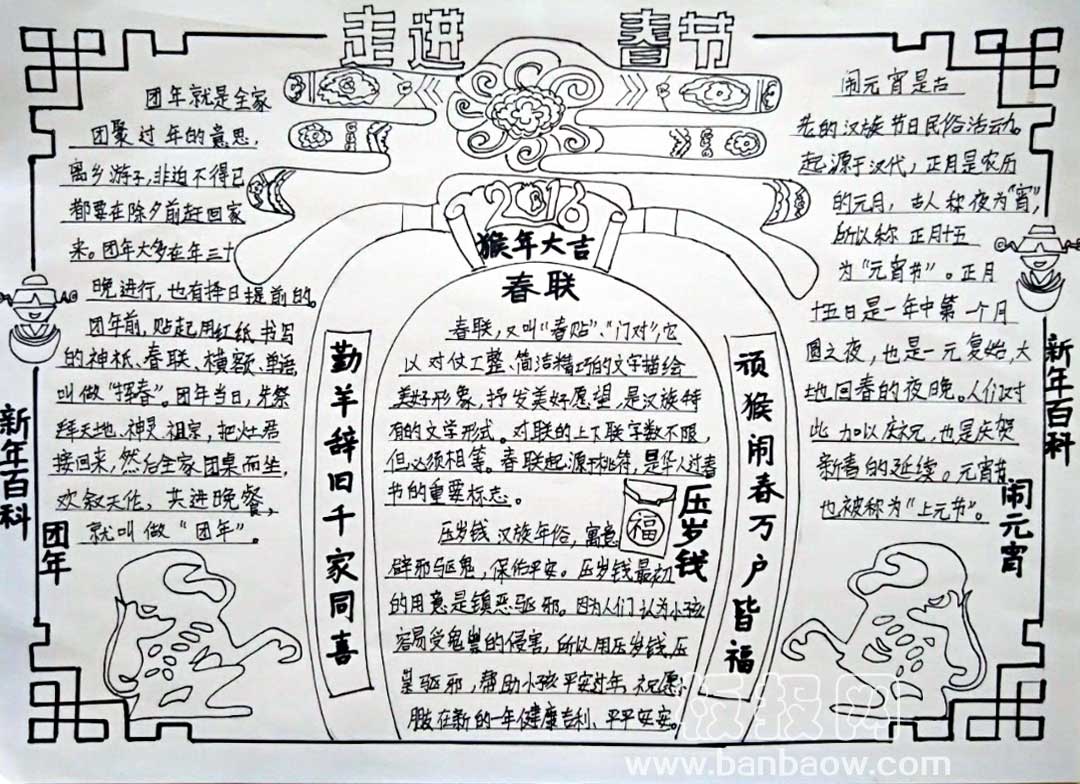 走进 春节
团年就是全家
团聚过年的意思,
离乡游子,非迫不得已
都要在除夕前赶回家
来。团年大多在年三十
晚进行,也有择日提前的。
团年前,贴起用红纸书写
的神祇、春联、横额、单语
叫做“挥春”。团年当日,先祭
拜天地、神灵、祖宗,把灶君
接回来,然后全家团桌而坐,
欢叙天伦,共进晚餐,
就叫做“团年”。
新年百科
团年
2016
猴年大吉
春联
勤羊辞旧千家同喜
春联,又叫“春贴”、“门对”,它
以对仗工整、简洁精巧的文字描绘
美好形象,抒发美好愿望,是汉族特
有的文学形式。对联的上下联字数不限,
但必须相等。春联起源于桃符,是华人过春
节的重要标志。
压岁钱
福
压岁钱汉族年俗,寓意
辟邪驱鬼,保佑平安。压岁钱最初
的用意是镇恶驱邪。因为人们认为小孩
容易受鬼祟的侵害,所以用压岁钱压
祟驱邪,帮助小孩平安过年,祝愿小
在新的一年健康吉利、平平安安。
顽猴闹春万户皆福
闹元宵是古
老的汉族节日民俗活动。
起源于汉代,正月是农历
的元月,古人称夜为“宵”,
所以称正月十五
为“元宵节”。正月
十五日是一年中第一个月
圆之夜,也是一元复始,大
地回春的夜晚。人们对
此加以庆祝,也是庆贺
新春的延续。元宵节
也被称为“上元节”。
新年百科
闹元宵
版报网
www.banbaow.com